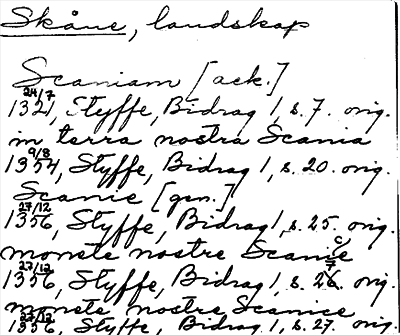 Skåne, landskap
Scaniam [ack.]
24/7
1321, Styffe, Bidrag 1, s. 7. orig.
in terra nostra Scania
9/8
1354, Styffe, Bidrag 1, s. 20. orig.
Scanie [gen.]
27/12
1356, Styffe, Bidrag 1, s. 25. orig.
monete nostre Scanie
27/12
1356, Styffe, Bidrag 1, s. 26. orig.
monete nostre Scanice
27/12
1356, Styffe, Bidrag 1, s. 27. orig.